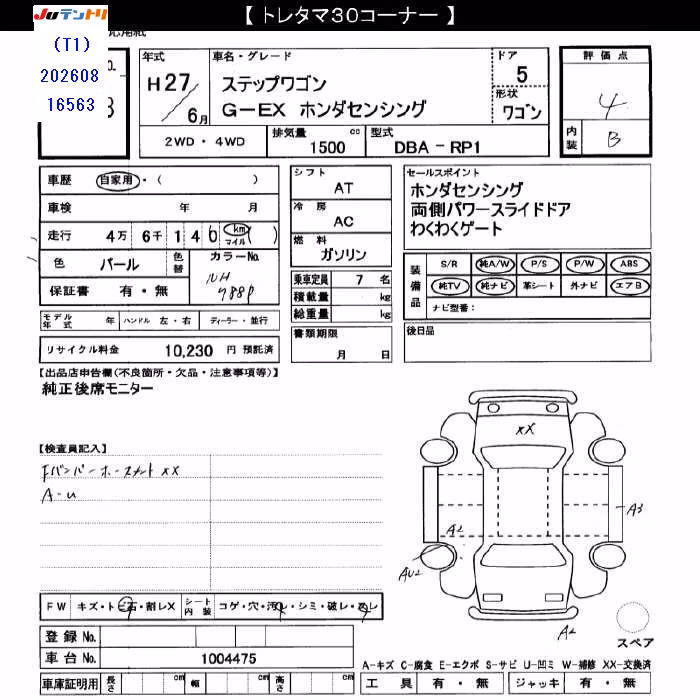 【 トレタマ30コーナー 】
JUテントリ
(T1)
202608
16563
年式 H27/6月
車名・グレード
ステップワゴン
G-EX ホンダセンシング
ドア 5
形状 ワゴン
評価点
4
内装 B
2WD・4WD
排気量 1500 cc
型式 DBA-RP1
車歴 自家用・( )
車検 年 月
走行 4万 6千 1 4 0 km マイル ( )
色 パール
色替
カラーNo.
NH
788P
保証書 有・無
シフト AT
冷房 AC
燃料 ガソリン
乗車定員 7 名
積載量 kg
総重量 kg
セールスポイント
ホンダセンシング
両側パワースライドドア
わくわくゲート
装備品
S/R 純A/W P/S P/W ABS
純TV 純ナビ 革シート 外ナビ エアB
ナビ型番：
モデル年式 年 ハンドル 左・右 ディーラー・並行
リサイクル料金 10,230 円 預託済
書類期限
月 日
後日品
【出品店申告欄(不良箇所・欠品・注意事項等)】
純正後席モニター
【検査員記入】
Fバンパーホースメント XX
A-U
XX
A2
A3
AU2
A2
スペア
FW キズ・トビ石・割レX
シート内装 コゲ・穴・汚レ・シミ・破レ・スレ
登録 No.
車台 No. 1004475
車庫証明用 長さ cm 幅 cm 高さ cm
A-キズ C-腐食 E-エクボ S-サビ U-凹ミ W-補修 XX-交換済
工具 有・無 ジャッキ 有・無